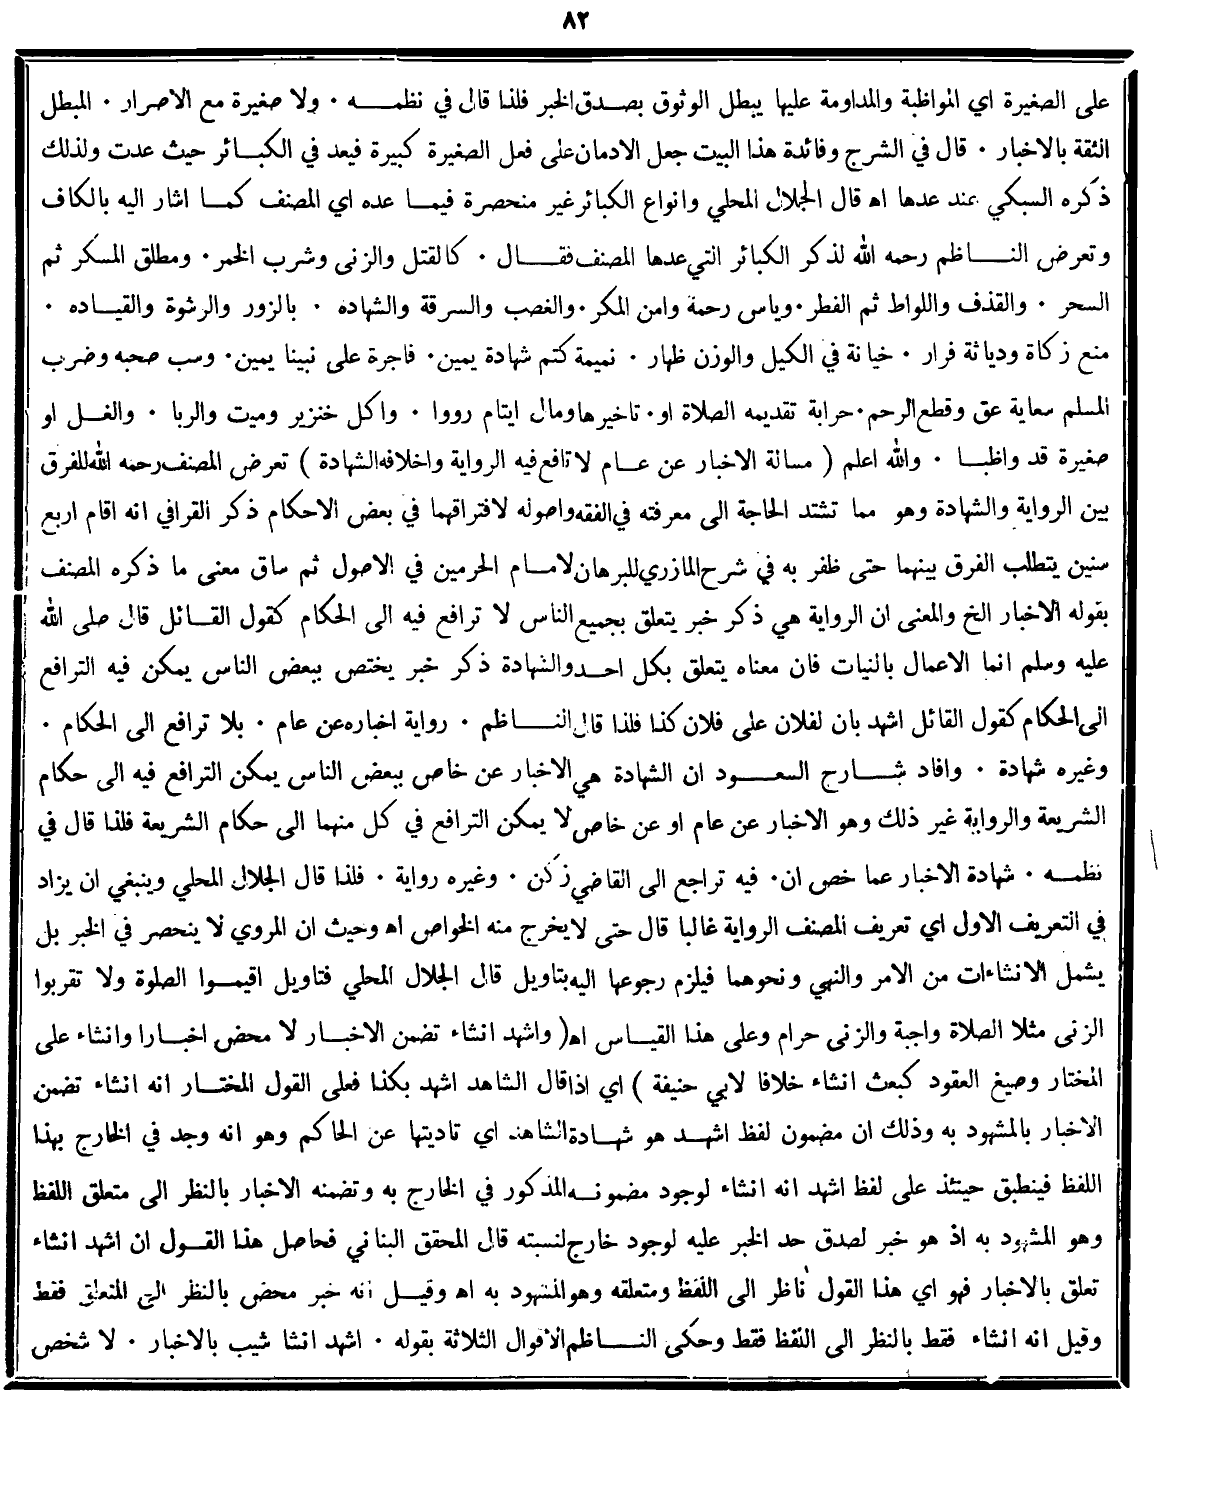 ٨٢
على الصغيرة اي المواظبة والمداومة عليها يبطل الوثوق بصدق الخبر فلذا قال في نظمه ٠ ولا صغيرة مع الاصرار ٠ المبطل
الثقة بالاخبار ٠ قال في الشرح وفائدة هذا البيت جعل الادمان على فعل الصغيرة كبيرة فيعد في الكبائر حيث عدت ولذلك
ذكره السبكي عند عدها اه قال الجلال المحلي وانواع الكبائر غير منحصرة فيما عده اي المصنف كما اشار اليه بالكاف
وتعرض الناظم رحمه الله لذكر الكبائر التي عدها المصنف فقال ٠ كالقتل والزنى وشرب الخمر ٠ ومطلق المسكر ثم
السحر ٠ والقذف واللواط ثم الفطر ٠ وياس رحمة وامن المكر ٠ والغصب والسرقة والشهاده ٠ بالزور والرشوة والقياده ٠
منع زكاة ودياثة فرار ٠ خيانة في الكيل والوزن ظهار ٠ نميمة كتم شهادة يمين ٠ فاجرة على نبينا يمين ٠ وسب صحبه وضرب
المسلم سعاية عق وقطع الرحم ٠ حرابة تقديمه الصلاة او ٠ تاخيرها ومال ايتام رووا ٠ واكل خنزير وميت والربا ٠ والغل او
صغيرة قد واظبا ٠ والله اعلم ( مسالة الاخبار عن عام لا ترافع فيه الرواية واخلافه الشهادة ) تعرض المصنف رحمه الله للفرق
بين الرواية والشهادة وهو مما تشتد الحاجة الى معرفته في الفقه واصوله لافتراقهما في بعض الاحكام ذكر القرافي انه اقام اربع
سنين يتطلب الفرق بينهما حتى ظفر به في شرح المازري للبرهان لامام الحرمين في الاصول ثم ساق معنى ما ذكره المصنف
بقوله الاخبار الخ والمعنى ان الرواية هي ذكر خبر يتعلق بجميع الناس لا ترافع فيه الى الحكام كقول القائل قال صلى الله
عليه وسلم انما الاعمال بالنيات فان معناه يتعلق بكل احد والشهادة ذكر خبر يختص ببعض الناس يمكن فيه الترافع
الى الحكام كقول القائل اشهد بان لفلان على فلان كذا فلذا قال الناظم ٠ رواية اخباره عن عام ٠ بلا ترافع الى الحكام ٠
وغيره شهادة ٠ وافاد شارح السعود ان الشهادة هي الاخبار عن خاص ببعض الناس يمكن الترافع فيه الى حكام
الشريعة والرواية غير ذلك وهو الاخبار عن عام او عن خاص لا يمكن الترافع في كل منهما الى حكام الشريعة فلذا قال في
نظمه ٠ شهادة الاخبار عما خص ان ٠ فيه تراجع الى القاضي زكن ٠ وغيره رواية ٠ فلذا قال الجلال المحلي وينبغي ان يزاد
في التعريف الاول اي تعريف المصنف الرواية غالبا قال حتى لا يخرج منه الخواص اه وحيث ان المروي لا ينحصر في الخبر بل
يشمل الانشاءات من الامر والنهي ونحوهما فيلزم رجوعها اليه بتاويل قال الجلال المحلي فتاويل اقيموا الصلوة ولا تقربوا
الزنى مثلا الصلاة واجبة والزنى حرام وعلى هذا القياس اه( واشهد انشاء تضمن الاخبار لا محض اخبارا وانشاء على
المختار وصيغ العقود كبعث انشاء خلافا لابي حنيفة ) اي اذا قال الشاهد اشهد بكذا فعلى القول المختار انه انشاء تضمن
الاخبار بالمشهود به وذلك ان مضمون لفظ اشهد هو شهادة الشاهد اي تاديتها عن الحاكم وهو انه وجد في الخارج بهذا
اللفظ فينطبق حينئذ على لفظ اشهد انه انشاء لوجود مضمونه المذكور في الخارج به وتضمنه الاخبار بالنظر الى متعلق اللفظ
وهو المشهود به اذ هو خبر لصدق حد الخبر عليه لوجود خارج لنسبته قال المحقق البناني فحاصل هذا القول ان اشهد انشاء
تعلق بالاخبار فهو اي هذا القول ناظر الى اللفظ ومتعلقه وهو المشهود به اه وقيل انه خبر محض بالنظر الى المتعلق فقط
وقيل انه انشاء فقط بالنظر الى اللفظ فقط وحكى الناظم الاقوال الثلاثة بقوله ٠ اشهد انشا شيب بالاخبار ٠ لا شخص